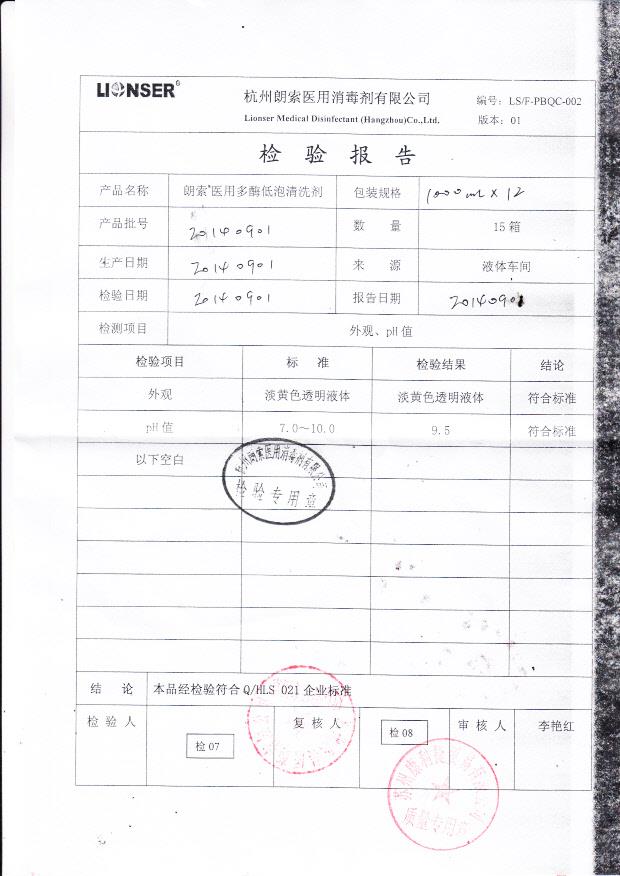 LIONSER®
杭州朗索医用消毒剂有限公司
Lionser Medical Disinfectant (Hangzhou)Co.,Ltd.
编号：LS/F-PBQC-002
版本：01
检验报告
产品名称 朗索®医用多酶低泡清洗剂 包装规格 1000ml×12
产品批号 20140901 数量 15箱
生产日期 20140901 来源 液体车间
检验日期 20140901 报告日期 20140901
检测项目 外观、pH值
检验项目 标准 检验结果 结论
外观 淡黄色透明液体 淡黄色透明液体 符合标准
pH值 7.0～10.0 9.5 符合标准
以下空白
杭州朗索医用消毒剂有限公司
检验专用章
结论 本品经检验符合Q/HLS 021企业标准
检验人 检07 复核人 检08 审核人 李艳红
质量专用章